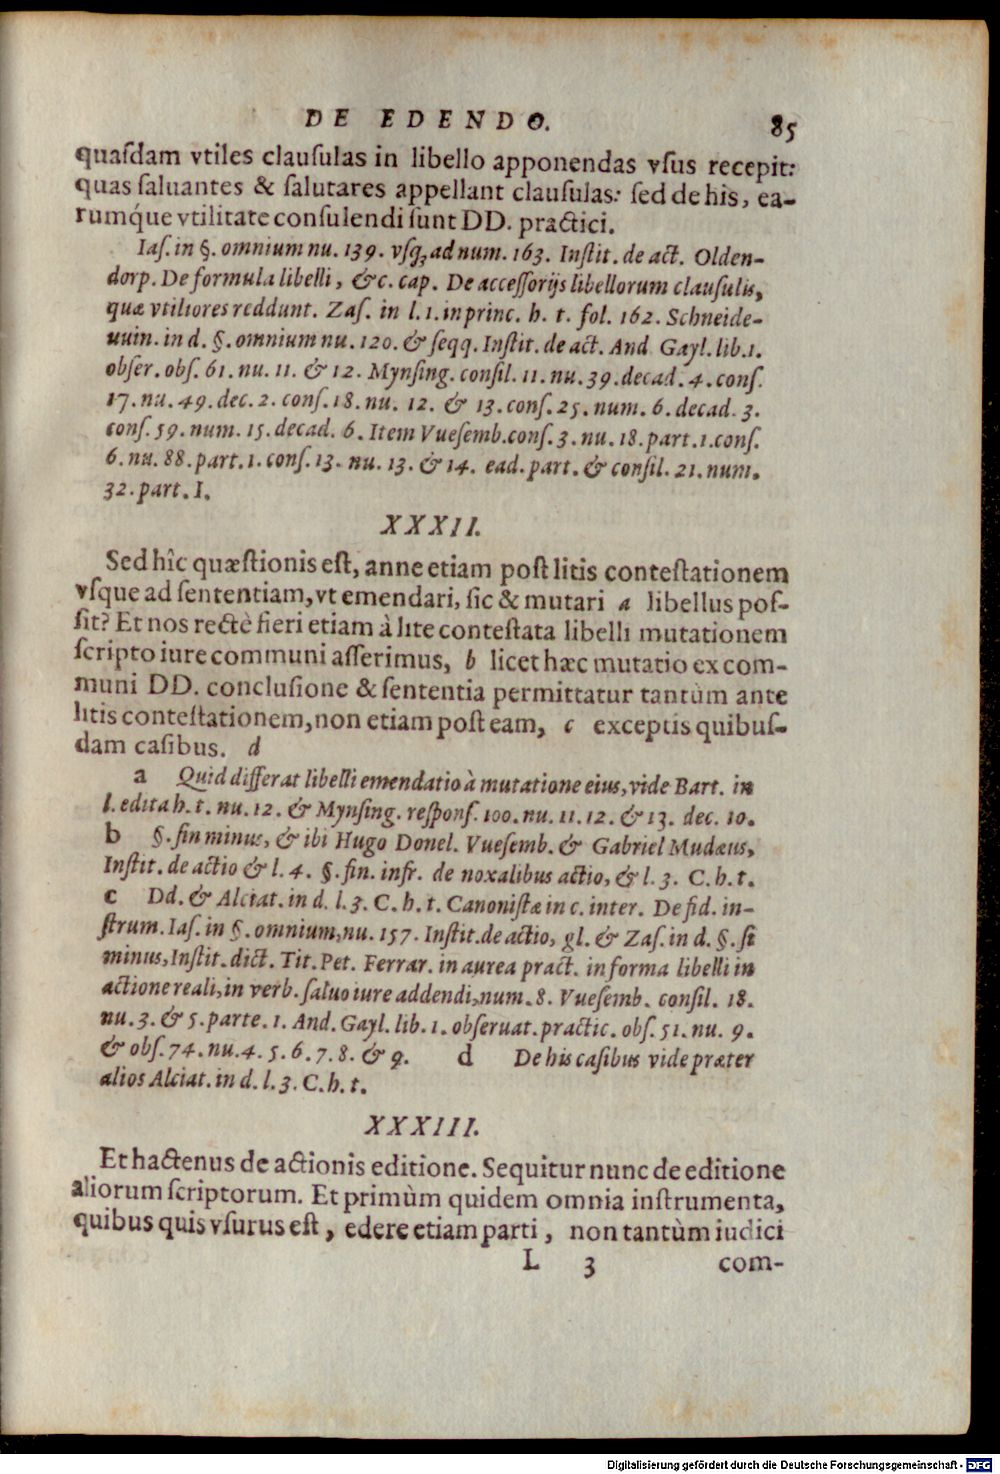 DE EDENDO. 85
quaſdam vtiles clauſulas in libello apponendas vſus recepit:
quas ſaluantes & ſalutares appellant clauſulas: ſed de his, ea-
rumq́ue vtilitate conſulendi ſunt DD. practici.
Iaſ. in §. omnium nu. 139. vſq; ad num. 163. Inſtit. de act. Olden-
dorp. De formula libelli, &c. cap. De acceſſorijs libellorum clauſulis,
quæ vtiliores reddunt. Zaſ. in l. 1. in princ. h. t. fol. 162. Schneide-
uuin. in d. §. omnium nu. 120. & ſeqq. Inſtit. de act. And Gayl. lib. 1.
obſer. obſ. 61. nu. 11. & 12. Mynſing. conſil. 11. nu. 39. decad. 4. conſ.
17. nu. 49. dec. 2. conſ. 18. nu. 12. & 13. conſ. 25. num. 6. decad. 3.
conſ. 59. num. 15. decad. 6. Item Vueſemb. conſ. 3. nu. 18. part. 1. conſ.
6. nu. 88. part. 1. conſ. 13. nu. 13. & 14. ead. part. & conſil. 21. num.
32. part. I.
XXXII.
Sed hîc quæſtionis eſt, anne etiam poſt litis conteſtationem
vſque ad ſententiam, vt emendari, ſic & mutari a libellus poſ-
ſit? Et nos rectè fieri etiam à lite conteſtata libelli mutationem
ſcripto iure communi aſſerimus, b licet hæc mutatio ex com-
muni DD. concluſione & ſententia permittatur tantùm ante
litis conteſtationem, non etiam poſt eam, c exceptis quibuſ-
dam caſibus. d
a Quid differat libelli emendatio à mutatione eius, vide Bart. in
l. edita h. t. nu. 12. & Mynſing. reſponſ. 100. nu. 11. 12. & 13. dec. 10.
b §. ſin minus, & ibi Hugo Donel. Vueſemb. & Gabriel Mudæus,
Inſtit. de actio & l. 4. §. fin. infr. de noxalibus actio, & l. 3. C. h. t.
c Dd. & Alciat. in d. l. 3. C. h. t. Canoniſtæ in c. inter. De fid. in-
ſtrum. Iaſ. in §. omnium, nu. 157. Inſtit. de actio, gl. & Zaſ. in d. §. ſi
minus, Inſtit. dict. Tit. Pet. Ferrar. in aurea pract. in forma libelli in
actione reali, in verb. ſaluo iure addendi, num. 8. Vueſemb. conſil. 18.
nu. 3. & 5. parte. 1. And. Gayl. lib. 1. obſeruat. practic. obſ. 51. nu. 9.
& obſ. 74. nu. 4. 5. 6. 7. 8. & 9. d De his caſibus vide præter
alios Alciat. in d. l. 3. C. h. t.
XXXIII.
Et hactenus de actionis editione. Sequitur nunc de editione
aliorum ſcriptorum. Et primùm quidem omnia inſtrumenta,
quibus quis vſurus eſt, edere etiam parti, non tantùm iudici
L 3 com-
Digitalisierung gefördert durch die Deutsche Forschungsgemeinschaft - DFG